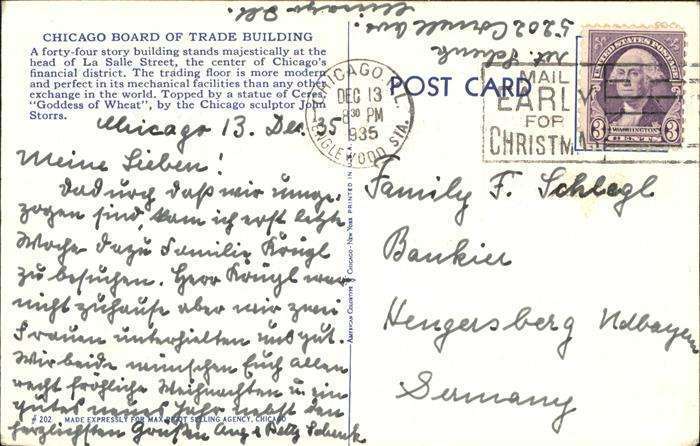 CHICAGO BOARD OF TRADE BUILDING
A forty-four story building stands majestically at the
head of La Salle Street, the center of Chicago's
financial district. The trading floor is more modern
and perfect in its mechanical facilities than any other
exchange in the world. Topped by a statue of Ceres,
"Goddess of Wheat", by the Chicago sculptor John
Storrs.
Chicago 13. Dez. 35
Meine Lieben!
Dadurch daß wir umge-
zogen sind, kam ich erst letzte
Woche dazu Familie Köngl
zu besuchen. Herr Köngl war
nicht zuhause aber wir zwei
Frauen unterhielten uns gut.
Wir beide wünschen Euch allen
recht fröhliche Weihnachten u. ein
gutes neues Jahr nebst den
herzlichsten Grüßen Aug. & Betty Schenk
# 202 MADE EXPRESSLY FOR MAX RIGOT SELLING AGENCY, CHICAGO
AMERICAN COLORTYPE CHICAGO-NEW YORK PRINTED IN U.S.A.
Abt. Schenk
5202 Cornell Ave.
Chicago Ill.
POST CARD
CHICAGO, ILL.
DEC 13
8 30 PM
1935
ENGLEWOOD STA.
MAIL
EARLY
FOR
CHRISTMAS
UNITED STATES POSTAGE
WASHINGTON
3 CENTS 3
Family F. Schlegl
Bankier
Hengersberg Ndbayern
Germany